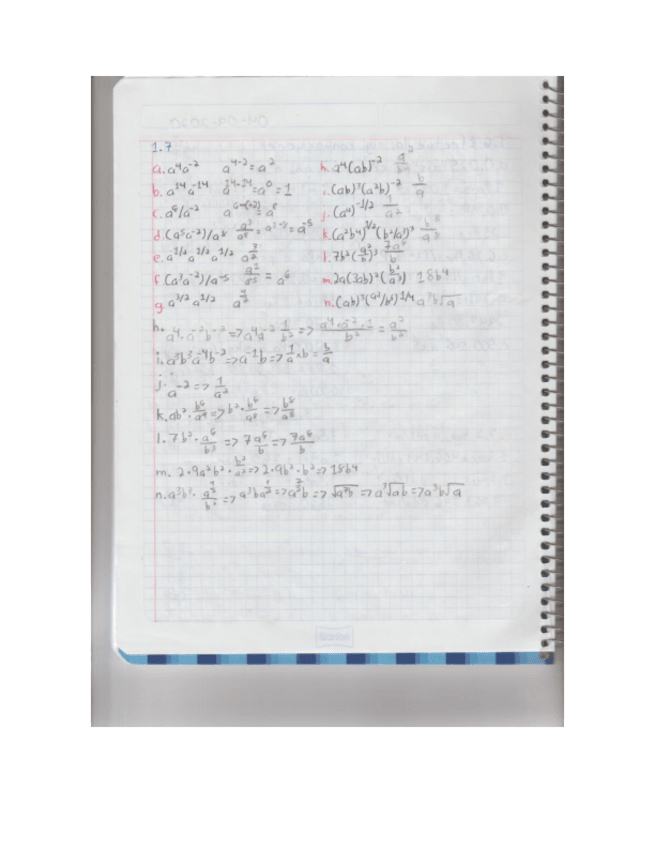 1.7
a. a⁴a⁻² a⁴⁻² = a²
b. a¹⁴a⁻¹⁴ a¹⁴⁻¹⁴ = a⁰ = 1
c. a⁶/a⁻² a⁶⁻⁽⁻²⁾ = a⁸
d. (a⁵a⁻²)/a⁸ a³/a⁸ = a³⁻⁸ = a⁻⁵
e. a^1/2 a^1/2 a^1/2 a^3/2
f. (a³a⁻²)/a⁻⁵ = a⁶
g. a^3/2 a^1/2
h. a⁴(ab)⁻²
i. (ab)³(a²b)⁻² b/a
j. (a⁴)^-1/2 1/a²
k. (a²b⁴)^1/2 (b²/a³)³ b⁸/a⁸
l. 7b²(a²/b)³ 7a⁶/b
m. 2a(3ab)²(b²/a³) 18b4
n. (ab)³(a²/b⁸)^1/4 a³b√a
h. a⁴·a⁻²b⁻² => a⁴a⁻² 1/b² => a⁴·a⁻²·1/b² = a²/b²
i. a³b³a⁻⁴b⁻² => a⁻¹b => 1/a × b = b/a
j. a⁻² => 1/a²
k. ab²· b⁶/a⁹ => b²· b⁶/a⁸ => b⁸/a⁸
l. 7b²· a⁶/b³ => 7 a⁶/b => 7a⁶/b
m. 2·9a²b²· b²/a² => 2·9b²·b² => 18b4
n. a³b³· => => => => a³√ab => a³b√a